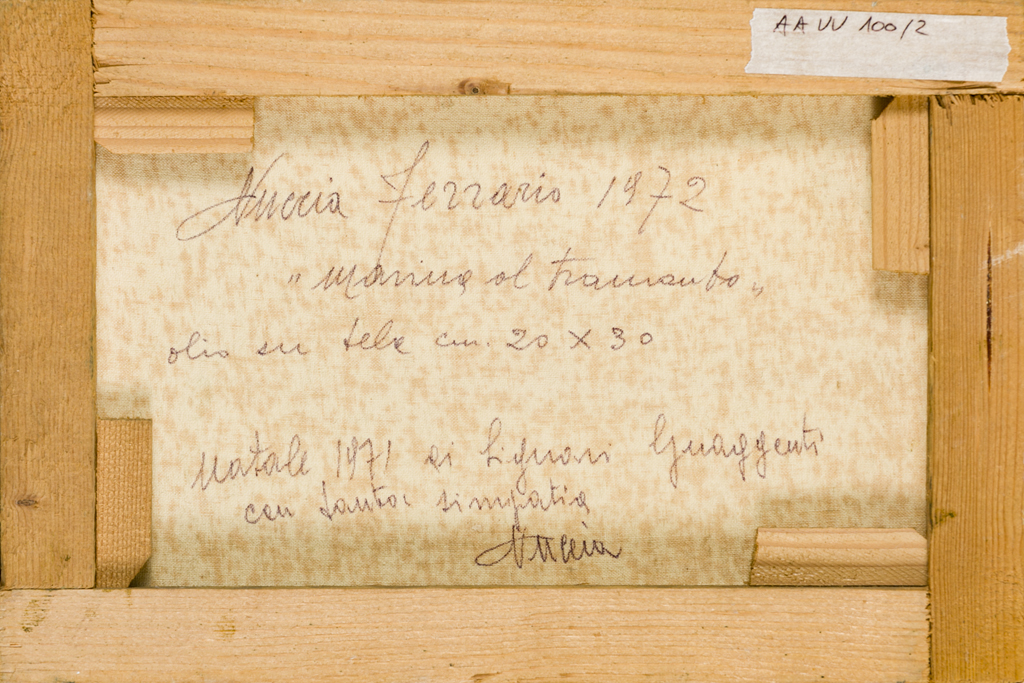 AA VV 100/2
Nuccia Ferrario 1972
"marina al tramonto"
olio su tela cm. 20 X 30
Natale 1971 ai Signori Guaggenti
con tanta simpatia
Nuccia